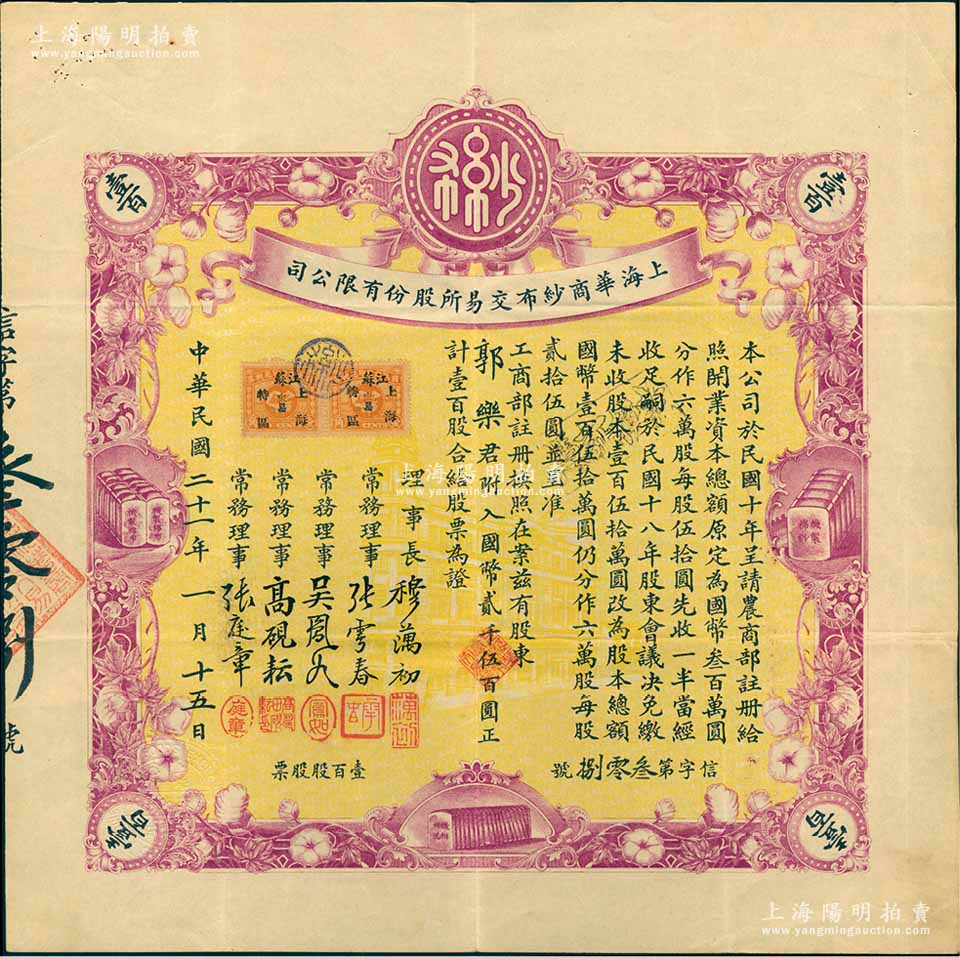 上海陽明拍賣
www.yangmingauction.com
紗布
壹百
壹百
上海華商紗布交易所股份有限公司
本公司於民國十年呈請農商部註册給
照開業資本總額原定為國幣叁百萬圓
分作六萬股每股伍拾圓先收一半當經
收足嗣於民國十八年股東會議決免繳
未收股本壹百伍拾萬圓改為股本總額
國幣壹百伍拾萬圓仍分作六萬股每股
貳拾伍圓並呈准
工商部註册換照在案茲有股東
郭樂君附入國幣貳千伍百圓正
計壹百股合給股票為證
理事長 穆藕初
常務理事 張雲春
常務理事 吳
常務理事 高硯耘
常務理事 張庭章
中華民國二十一年一月十五日
江蘇
上海
特區
江蘇
上海
特區
信字第叁零捌號
壹百股股票
信字第叁零捌號
壹百
壹百
上海陽明拍賣
www.yangmingauction.com
上海陽明拍賣
www.yangmingauction.com